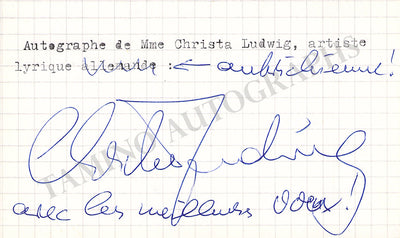 Autographe de Mme Christa Ludwig, artiste
lyrique allemande : ← autrichienne!
Christa Ludwig
avec les meilleurs vœux!
TAMINO AUTOGRAPHS